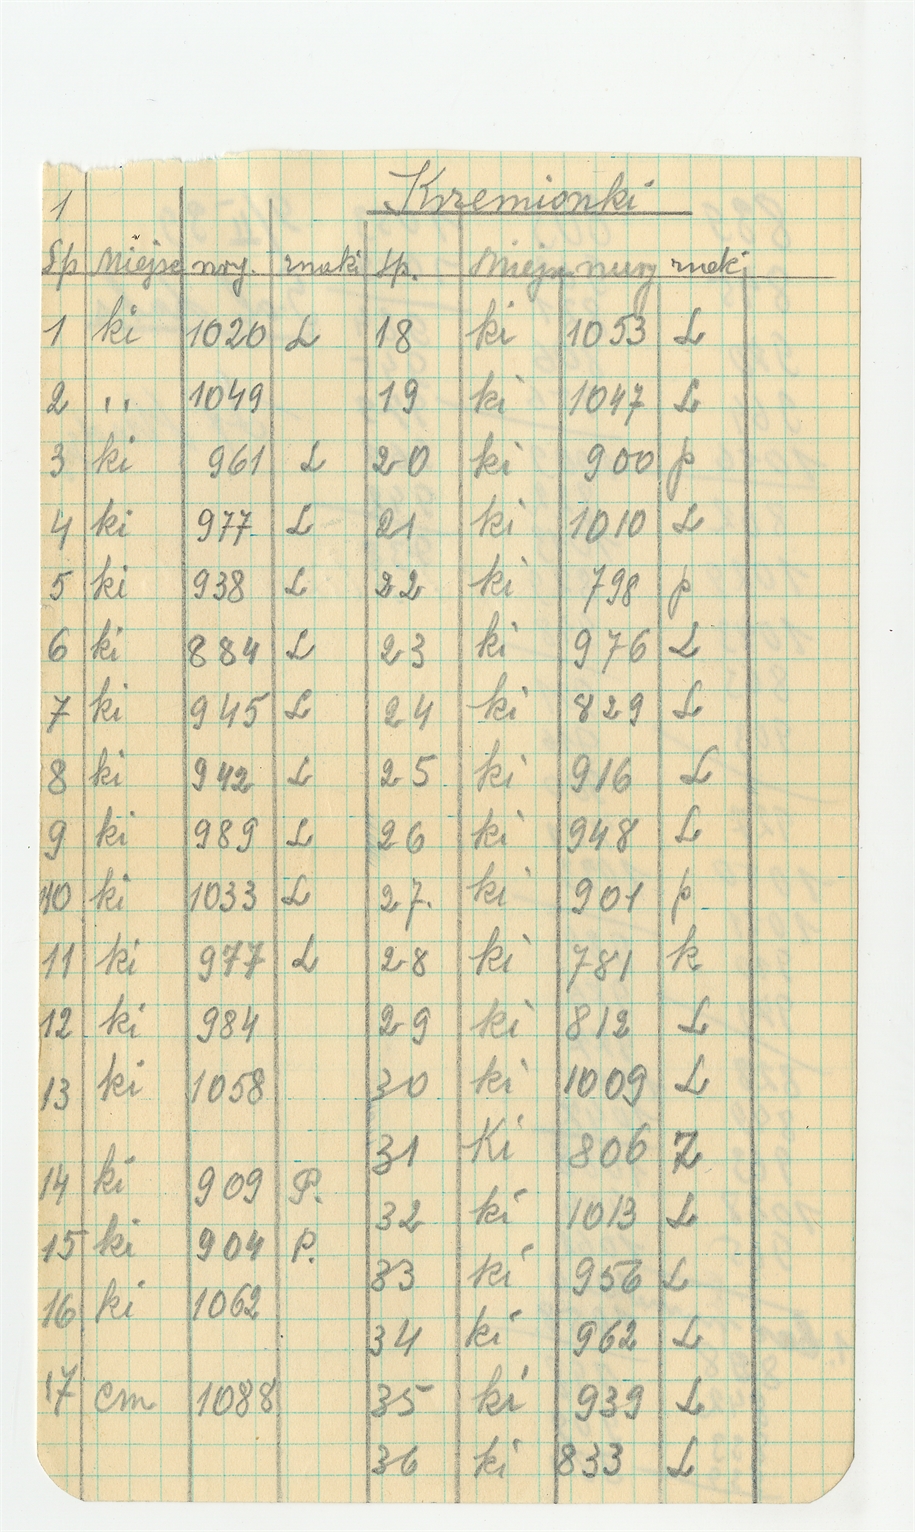 1 Krzemionki
Sp Miejsc nry. znaki Sp. Miejsc nury znaki
1 ki 1020 L 18 ki 1053 L
2 ,, 1049 19 ki 1047 L
3 ki 961 L 20 ki 900 p
4 ki 977 L 21 ki 1010 L
5 ki 938 L 22 ki 798 p
6 ki 884 L 23 ki 976 L
7 ki 945 L 24 ki 829 L
8 ki 942 L 25 ki 916 L
9 ki 989 L 26 ki 948 L
10 ki 1033 L 27. ki 901 p
11 ki 977 L 28 ki 781 k
12 ki 984 29 ki 812 L
13 ki 1058 30 ki 1009 L
31 Ki 806 Z
14 ki 909 P.
32 ki 1013 L
15 ki 904 P.
33 ki 956 L
16 ki 1062
34 ki 962 L
17 cm 1088 35 ki 939 L
36 ki 833 L